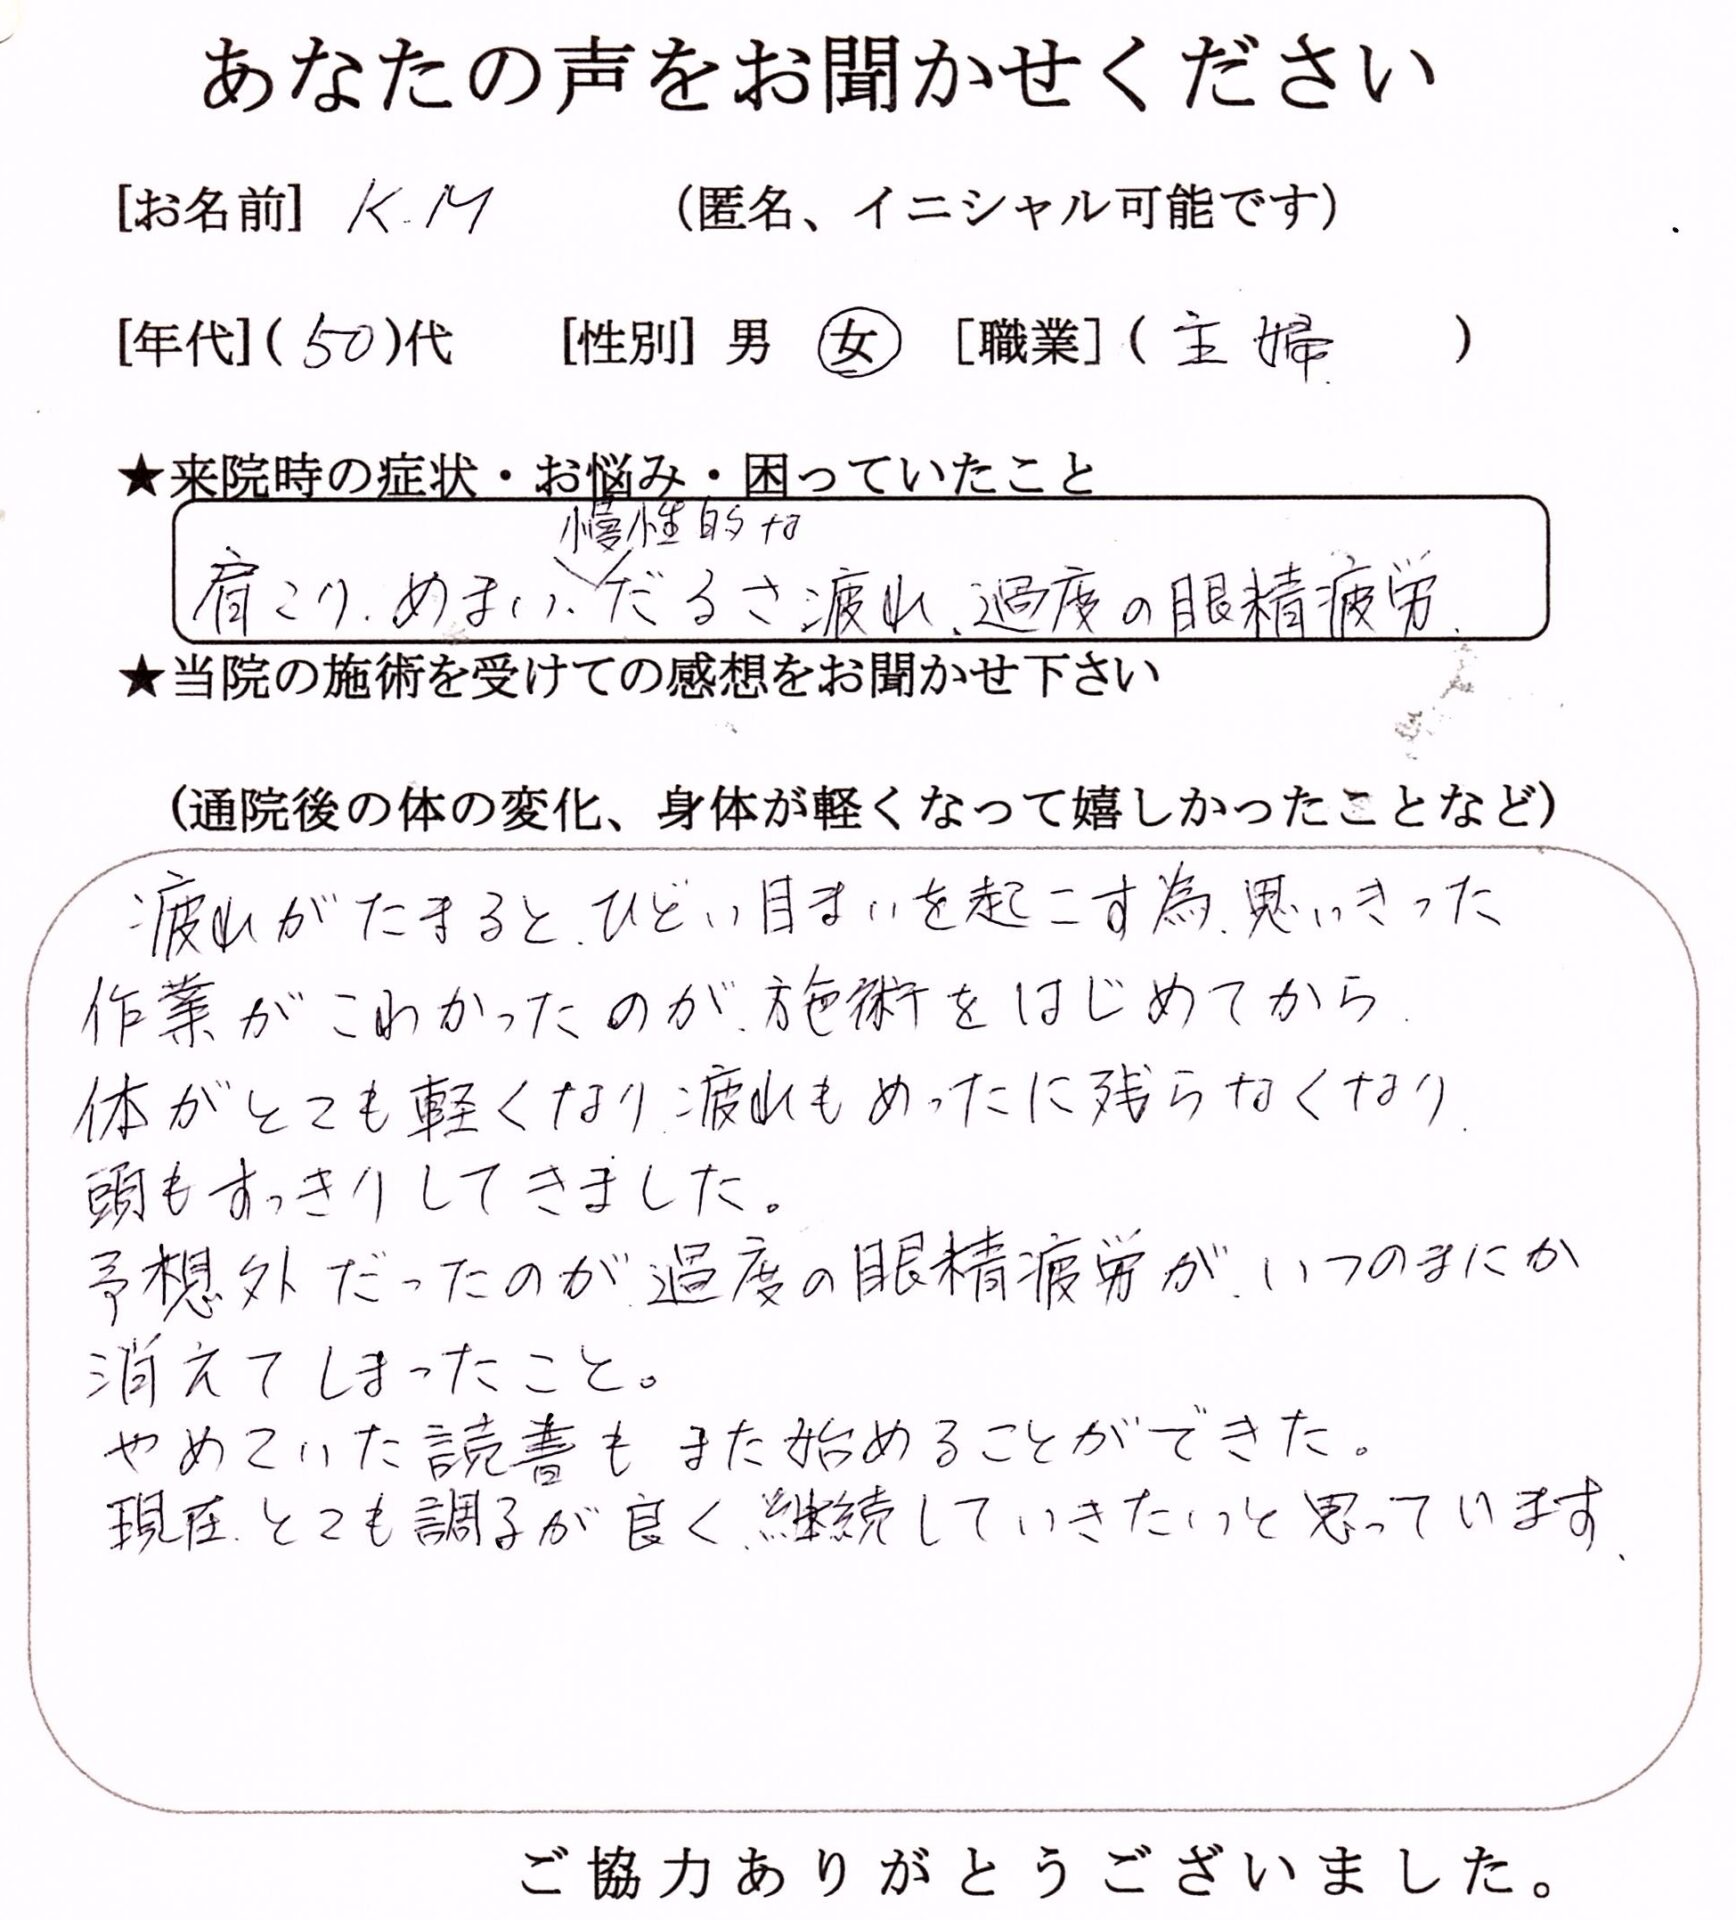 あなたの声をお聞かせください
[お名前] K.M (匿名、イニシャル可能です)
[年代](50)代 [性別] 男 女 [職業](主婦)
★来院時の症状・お悩み・困っていたこと
慢性的な
肩こり、めまい、だるさ疲れ、過度の眼精疲労、
★当院の施術を受けての感想をお聞かせ下さい
(通院後の体の変化、身体が軽くなって嬉しかったことなど)
疲れがたまると、ひどい目まいを起こす為、思いきった
作業がこわかったのが、施術をはじめてから、
体がとても軽くなり、疲れもめったに残らなくなり、
頭もすっきりしてきました。
予想外だったのが、過度の眼精疲労が、いつのまにか
消えてしまったこと。
やめていた読書もまた始めることができた。
現在、とても調子が良く、継続していきたいと思っています、
ご協力ありがとうございました。